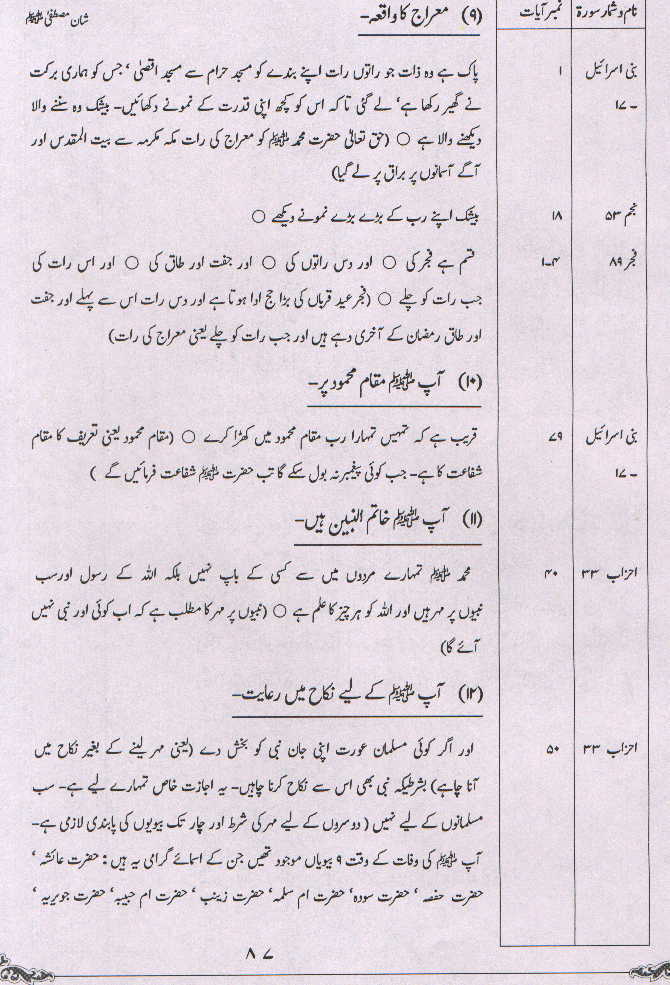 شان مصطفیٰ ﷺ
نام و شمار سورۃ نمبر آیات
(۹) معراج کا واقعہ-
بنی اسرائیل ۱
۱۷-
پاک ہے وہ ذات جو راتوں رات اپنے بندے کو مسجد حرام سے مسجد اقصیٰ ‘ جس کو ہماری برکت
نے گھیر رکھا ہے‘ لے گئی تاکہ اس کو کچھ اپنی قدرت کے نمونے دکھائیں- بیشک وہ سننے والا
دیکھنے والا ہے ○ (حق تعالیٰ حضرت محمد ﷺ کو معراج کی رات مکہ مکرمہ سے بیت المقدس اور
آگے آسمانوں پر براق پر لے گیا)
نجم ۵۳ ۱۸ بیشک اپنے رب کے بڑے بڑے نمونے دیکھے ○
فجر ۸۹ ۱-۴ قسم ہے فجر کی ○ اور دس راتوں کی ○ اور جفت اور طاق کی ○ اور اس رات کی
جب رات کو چلے ○ (فجر عید قرباں کی بڑا حج ادا ہوتا ہے اور دس رات اس سے پہلے اور جفت
اور طاق رمضان کے آخری دہے ہیں اور جب رات کو چلے یعنی معراج کی رات)
(۱۰) آپ ﷺ مقام محمود پر-
بنی اسرائیل ۷۹
۱۷-
قریب ہے کہ تمہیں تمہارا رب مقام محمود میں کھڑا کرے ○ (مقام محمود یعنی تعریف کا مقام
شفاعت کا ہے- جب کوئی پیغمبر نہ بول سکے گا تب حضرت ﷺ شفاعت فرمائیں گے )
(۱۱) آپ ﷺ خاتم النبین ہیں-
احزاب ۳۳ ۴۰ محمد ﷺ تمہارے مردوں میں سے کسی کے باپ نہیں بلکہ اللہ کے رسول اور سب
نبیوں پر مہر ہیں اور اللہ کو ہر چیز کا علم ہے ○ (نبیوں پر مہر کا مطلب ہے کہ اب کوئی اور نبی نہیں
آئے گا)
(۱۲) آپ ﷺ کے لیے نکاح میں رعایت-
احزاب ۳۳ ۵۰ اور اگر کوئی مسلمان عورت اپنی جان نبی کو بخش دے (یعنی مہر لینے کے بغیر نکاح میں
آنا چاہے) بشرطیکہ نبی بھی اس سے نکاح کرنا چاہیں- یہ اجازت خاص تمہارے لیے ہے- سب
مسلمانوں کے لیے نہیں ( دوسروں کے لیے مہر کی شرط اور چار تک بیویوں کی پابندی لازمی ہے-
آپ ﷺ کی وفات کے وقت ۹ بیویاں موجود تھیں جن کے اسمائے گرامی یہ ہیں : حضرت عائشہ ‘
حضرت حفصہ ‘ حضرت سودہ‘ حضرت ام سلمہ‘ حضرت زینب ‘ حضرت ام حبیبہ‘ حضرت جویریہ ‘
۸۷